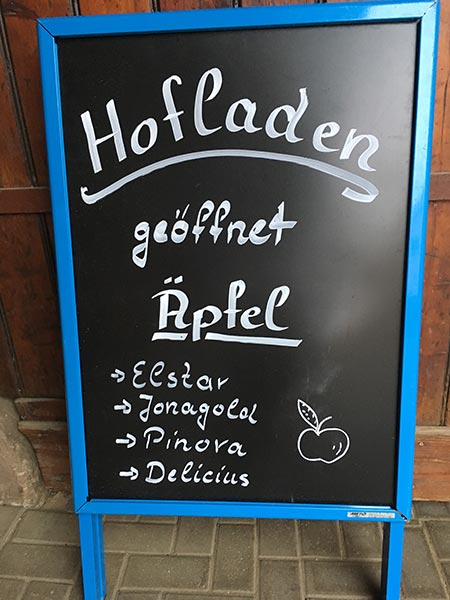 Hofladen
geöffnet
Äpfel
→ Elstar
→ Jonagold
→ Pinova
→ Delicius